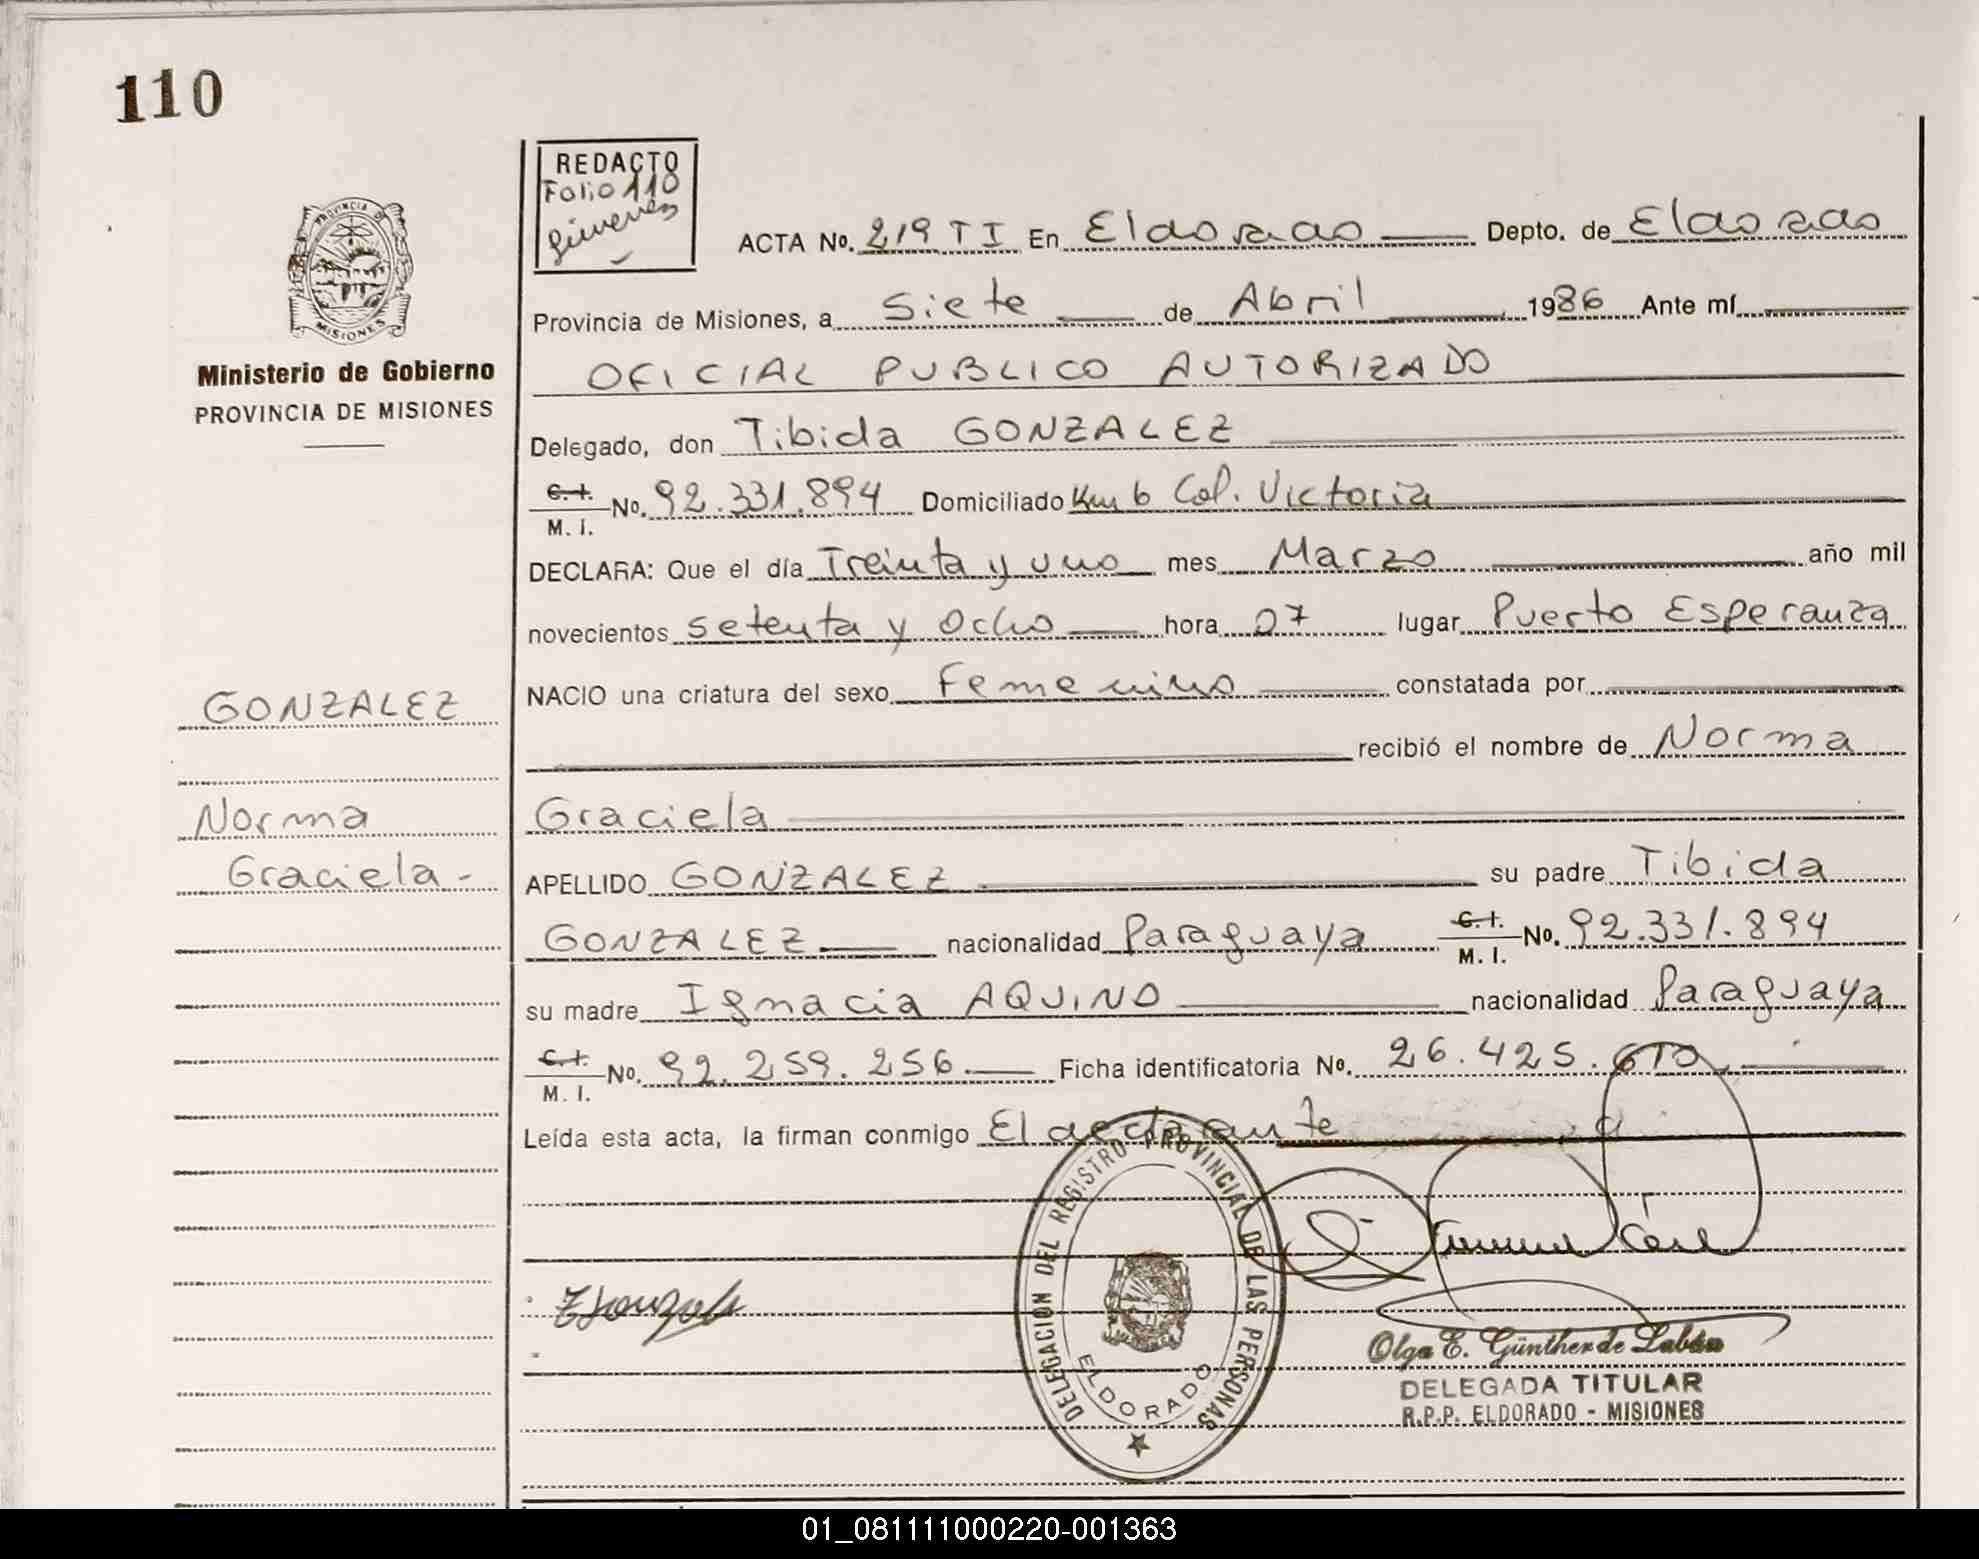 110
REDACTO
Folio 110
PROVINCIA DE
MISIONES
Ministerio de Gobierno
PROVINCIA DE MISIONES
ACTA No. 219 TI En Eldorado Depto. de Eldorado
Provincia de Misiones, a Siete de Abril 1986 Ante mí
OFICIAL PUBLICO AUTORIZADO
Delegado, don Tibida GONZALEZ
C.I. M.I. No. 92.331.894 Domiciliado Km 6 Col. Victoria
DECLARA: Que el día Treinta y uno mes Marzo año mil
novecientos setenta y Ocho hora 07 lugar Puerto Esperanza
NACIO una criatura del sexo Femenino constatada por
recibió el nombre de Norma
Graciela
APELLIDO GONZALEZ su padre Tibida
GONZALEZ nacionalidad Paraguaya C.I. M.I. No. 92.331.894
su madre Ignacia AQUINO nacionalidad Paraguaya
C.I. M.I. No. 92.259.256. Ficha identificatoria No. 26.425.610
Leída esta acta, la firman conmigo El declarante
GONZALEZ
Norma
Graciela -
DELEGACION DEL REGISTRO PROVINCIAL DE LAS PERSONAS
ELDORADO
Olga E. Günther de Labán
DELEGADA TITULAR
R.P.P. ELDORADO - MISIONES
01_081111000220-001363